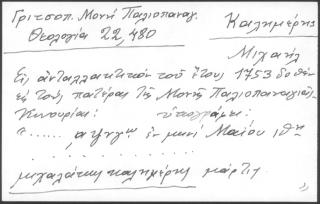 Γριτσοπ. Μονή Παλιοπαναγ.
Θεολογία 22, 480
Καλημέρης
Μιχαήλ
Εἰς ἀνταλλακτικόν τοῦ ἔτους 1753 δοθέν
εἰς τούς πατέρας τῆς Μονῆς Παλιοπαναγιᾶς
Κυνουρίας: ὑπογράφει:
"...... αψνγ῀ω ἐν μηνί Μαΐου ιθῃ
. . . . . . . . . .
μιχαλάκης καλημέρης μάρτις